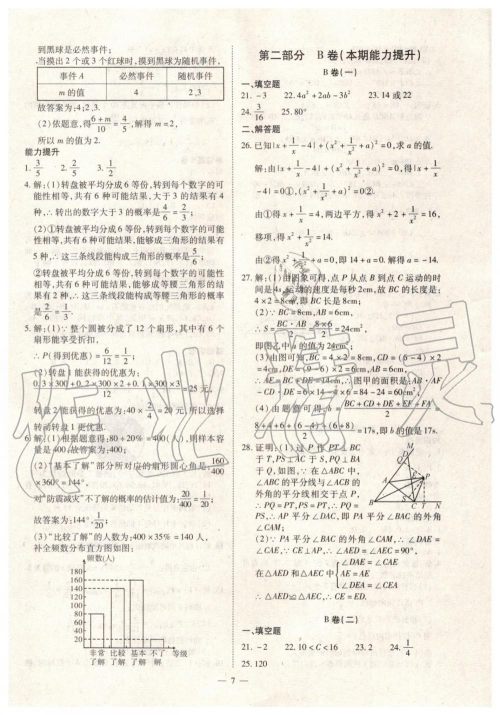 到黑球是必然事件;
当摸出2个或3个红球时,摸到黑球为随机事件,
事件A 必然事件 随机事件
m的值 4 2、3
故答案为:4;2、3.
(2)依题意,得(6+m)/10=4/5,解得 m=2,
所以m的值为2.
能力提升
1. 3/5 2. 2/5 3. 1/2
4.解:(1)转盘被平均分成6等份,转到每个数字的可
能性相等,共有6种可能结果,大于3的结果有4
种,∴转出的数字大于3的概率是4/6=2/3;
(2)①转盘被平均分成6等份,转到每个数字的可
能性相等,共有6种可能结果,能够成三角形的结果有
5种,∴这三条线段能构成三角形的概率是5/6;
②转盘被平均分成6等份,转到每个数字的可能性
相等,共有6种可能结果,能够成等腰三角形的结
果有2种,∴这三条线段能构成等腰三角形的概率
是2/6=1/3.
5.解:(1)∵整个圆被分成了12个扇形,其中有6个
扇形能享受折扣,
∴P(得到优惠)=6/12=1/2;
(2)转盘1能获得的优惠为:
(0.3×300+0.2×300×2+0.1×300×3)/12=25元,
转盘2能获得的优惠为:40×2/4=20元,所以选择
转动转盘1更优惠.
6.解:(1)根据题意得:80÷20%=400(人),则样本容
量是400,故答案为:400;
(2)“基本了解”部分所对应的扇形圆心角是:160/400
×360°=144°,
对“防震减灾”不了解的概率的估计值为:20/400=1/20;
故答案为:144°,1/20;
(3)“比较了解”的人数为:400×35%=140人,
补全频数分布直方图如图:
频数(人)
180
160
140
120
100
80
60
40
20
非常了解 比较了解 基本了解 不了解 等级
第二部分 B卷(本期能力提升)
B卷(一)
一、填空题
21. -3 22. 4a²+2ab-3b² 23. 14或22
24. 3/16 25. 80°
二、解答题
26.已知|x+1/x-4|+(x²+1/x²+a)²=0,求a的值.
解:由|x+1/x-4|+(x²+1/x²+a)²=0,得|x+1/x
-4|=0①,(x²+1/x²+a)²=0②.
由①得x+1/x=4,两边平方,得x²+2+1/x²=16,
移项,得x²+1/x²=14.
由②得x²+1/x²+a=0,即14+a=0.解得a=-14.
27.解:(1)由图象可得,点P从点B到点C运动的时
间是4s,运动的速度是每秒2cm,故BC的长度是:
4×2=8cm,即BC长是8cm;
(2)∵BC=8cm,AB=6cm,
∴S=(BC·AB)/2=(8×6)/2=24cm²,
即图乙中a的值为24cm²;
(3)由图可知,BC=4×2=8cm,CD=(6-4)×2
=4cm,DE=(9-6)×2=6cm,AB=6cm,
∴AE=BC+DE=14cm,∴图甲的面积是:AB·AF
-CD·DE=6×14-4×6=84-24=60cm²;
(4)由题意可得:b=(BC+CD+DE+EF+FA)/2=
(8+4+6+(6-4)+(8+6))/2=17s,即b的值是17s.
28.证明:(1)过P作PT⊥BC
于T,PS⊥AC于S,PQ⊥BA
于Q,如图,∵在△ABC中,
∠ABC的平分线与∠ACB的
外角的平分线相交于点P,
∴PQ=PT,PS=PT,∴PQ=
PS,∴AP平分∠DAC,即PA平分∠BAC的外角
∠CAM;
(2)∵PA平分∠BAC的外角∠CAM,∴∠DAE=
∠CAE,∵CE⊥AP,∴∠AED=∠AEC=90°,
在△AED和△AEC中{∠DAE=∠CAE
AE=AE
∠DEA=∠CEA
∴△AED≌△AEC,∴CE=ED.
B卷(二)
一、填空题
21. -2 22. 10<C<16 23. 2 24. 1/4
25. 120
— 7 —